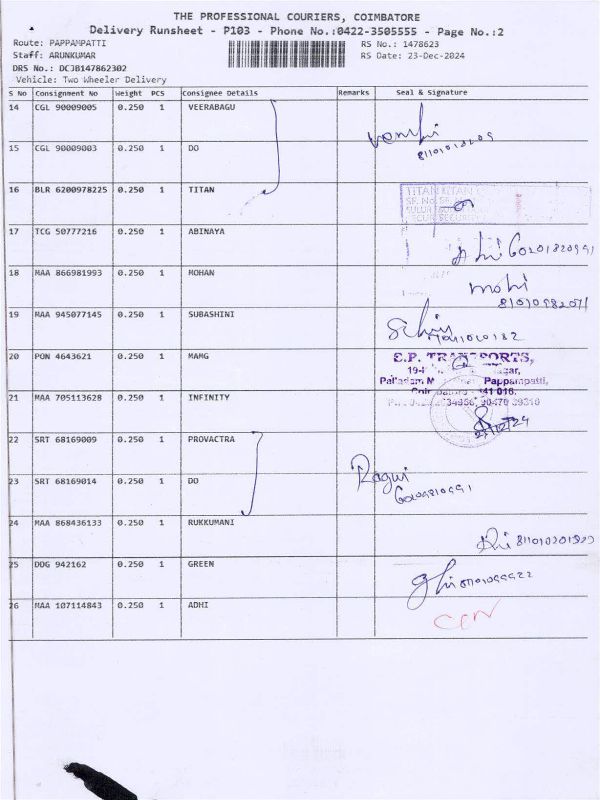 THE PROFESSIONAL COURIERS, COIMBATORE
Delivery Runsheet - P103 - Phone No.:0422-3505555 - Page No.:2
Route: PAPPAMPATTI RS No.: 1478623
Staff: ARUNKUMAR RS Date: 23-Dec-2024
DRS No.: DCJB147862302
Vehicle: Two Wheeler Delivery
S No Consignment No Weight PCS Consignee Details Remarks Seal & Signature
14 CGL 90009005 0.250 1 VEERABAGU
15 CGL 90009003 0.250 1 DO
16 BLR 6200978225 0.250 1 TITAN
TITAN
17 TCG 50777216 0.250 1 ABINAYA
18 MAA 866981993 0.250 1 MOHAN
mohi
19 MAA 945077145 0.250 1 SUBASHINI
20 PON 4643621 0.250 1 MAMG
Pappampatti,
21 MAA 705113628 0.250 1 INFINITY
22 SRT 68169009 0.250 1 PROVACTRA
23 SRT 68169014 0.250 1 DO
Ragui
24 MAA 868436133 0.250 1 RUKKUMANI
25 DDG 942162 0.250 1 GREEN
26 MAA 107114843 0.250 1 ADHI